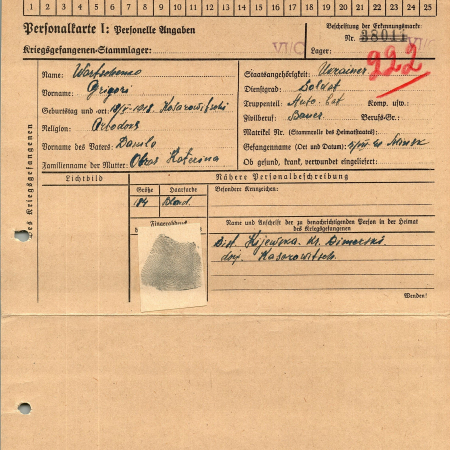 1 2 3 4 5 6 7 8 9 10 11 12 13 14 15 16 17 18 19 20 21 22 23 24 25
Personalkarte I: Personelle Angaben
Kriegsgefangenen-Stammlager:
VI/C
Beschriftung der Erkennungsmarke
Nr. 38011
Lager:
VI/C
222
Des Kriegsgefangenen
Name:
Vorname: Grigori
Geburtstag und -ort:
Religion: Ortodox
Vorname des Vaters: Danilo
Familienname der Mutter: Katerina
Staatsangehörigkeit: Ukrainer
Dienstgrad: Soldat
Truppenteil: Auto. Bat Komp. usw.:
Zivilberuf: Bauer Berufs-Gr.:
Matrikel Nr. (Stammrolle des Heimatstaates):
Gefangennahme (Ort und Datum): Minsk
Ob gesund, krank, verwundet eingeliefert:
Lichtbild
Nähere Personalbeschreibung
Größe
Haarfarbe
Besondere Kennzeichen:
Blond.
Fingerabdruck
Name und Anschrift der zu benachrichtigenden Person in der Heimat
des Kriegsgefangenen
Kijewska
Wenden!